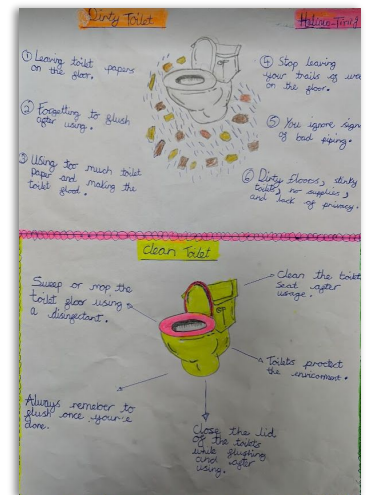 Dirty Toilet
① Leaving toilet papers
on the floor.
② Forgetting to flush
after using.
③ Using too much toilet
paper and making the
toilet flood.
④ Stop leaving
your trails of
on the floor.
⑤ You ignore sign
of bad piping.
⑥ Dirty floors, stinky
toilets, no supplies,
and lack of privacy.
Clean Toilet
Sweep or mop the
toilet floor using
a disinfectant.
Clean the toilet
seat after
usage.
Toilets protect
the environment.
Always remeber to
flush once your'e
done.
Close the lid
of the toilets
while flushing
and after
using.